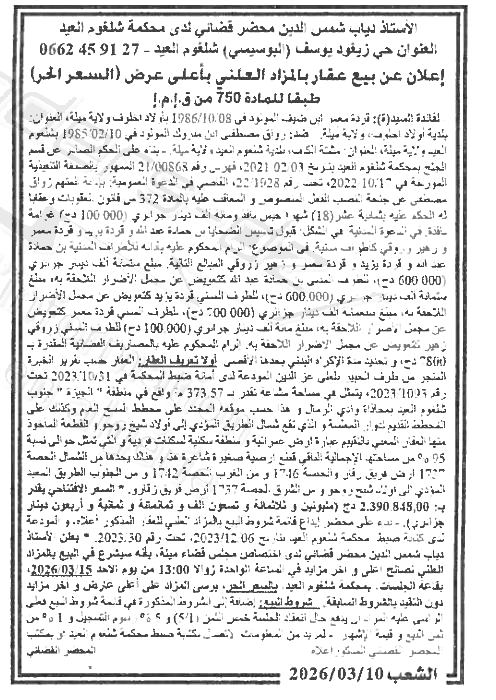 الأستاذ دباب شمس الدين محضر قضائي لدى محكمة شلغوم العيد
العنوان حي زيغود يوسف (البوسيبي) شلغوم العيد - 27 91 45 0662
إعلان عن بيع عقار بالمزاد العلني بأعلى عرض (السعر الحر)
طبقا للمادة 750 من ق.إ.م.إ
لفائدة السيد(ة): قردة معمر ابن ضيف المولود في 1986/10/08 بأولاد اخلوف ولاية ميلة، العنوان:
بلدية أولاد اخلوف، ولاية ميلة. ضد: رواق مصطفى ابن مبروك المولود في 1985/02/10 بشلغوم
العيد ولاية ميلة، العنوان: مشتة بلدية شلغوم العيد، ولاية ميلة. - بناء على الحكم الصادر عن قسم
الجنح بمحكمة شلغوم العيد بتاريخ 2021/02/03، فهرس رقم 21/00868 الممهور بالصيغة التنفيذية
المؤرخة في 2022/10/17، تحت رقم 22/1928، القاضي في الدعوة العمومية: بإدانة المتهم رواق
مصطفى عن جنحة النصب الفعل المنصوص و المعاقب عليه بالمادة 372 من قانون العقوبات وعقابا
له الحكم عليه بثمانية عشر (18) شهرا حبس نافذ ومائة ألف دينار جزائري (100.000 دج) غرامة
نافذة، في الدعوة المدنية: في الشكل: قبول تأسيس الضحايا حمادة عبد الله و قردة يزيد و قردة معمر
و زهير زروقي كأطراف مدنية. في الموضوع: إلزام المحكوم عليه بأدائه للأطراف المدنية بن حمادة
عبد الله و قردة يزيد و قردة معمر و زهير زروقي المبالغ التالية: مبلغ ستمائة ألف دينار جزائري
(600.000 دج)، للطرف المدني بن حمادة عبد الله كتعويض عن مجمل الأضرار اللاحقة به، مبلغ
ستمائة ألف دينار جزائري (600.000 دج)، للطرف المدني قردة يزيد كتعويض عن مجمل الأضرار
اللاحقة به، مبلغ سبعمائة ألف دينار جزائري (700.000 دج)، للطرف المدني قردة معمر كتعويض
عن مجمل الأضرار اللاحقة به، مبلغ مائة ألف دينار جزائري (100.000 دج) للطرف المدني زروقي
زهير كتعويض عن مجمل الأضرار اللاحقة به. إلزام المحكوم عليه بالمصاريف القضائية المقدرة بـ
دج و تحديد مدة الإكراه البدني بحدها الأقصى. أولا تعريف العقار: العقار حسب تقرير الخبرة
المنجز من طرف الخبير بلعلى عز الدين المودعة لدى أمانة ضبط المحكمة في 2023/10/31 تحت
رقم 2023/1093، يتمثل في مساحة مشاعة تقدر بـ 373.57 م² واقع في منطقة " الجيزة " جنوب
شلغوم العيد بمحاذاة وادي الرمال و هذا حسب موقعه المحدد على مخطط المسح العام وكذلك على
المخطط القديم لدوار و الذي يقع شمال الطريق المؤدي إلى أولاد شيخ روحو و القطعة المأخوذ
منها العقار المعني بالتقييم عبارة أرض عمرانية و منطقة سكنية لسكنات فردية و التي تمثل حوالي نسبة
95 % من مساحتها الإجمالية الباقي قطع أرضية صغيرة شاغرة هذا و هناك يحدها من الشمال الحصة
1737 أرض فريق زقار والحصة 1746 و من الغرب الحصة 1742 و من الجنوب الطريق المعبد
المؤدي إلى أولاد شيخ روحو و من الشرق الحصة 1737 أرض فريق زقارو. * السعر الافتتاحي يقدر
بـ: 2.390.848,00 دج (مليونين و ثلاثمائة و تسعون ألف و ثمانمائة و ثمانية و أربعون دينار
جزائري). - بناء على محضر إيداع قائمة شروط البيع بالمزاد العلني للعقار المذكور أعلاه، و المودعة
لدى كتابة ضبط محكمة شلغوم العيد بتاريخ 2023/12/06، تحت رقم 2023/30. * يعلن الأستاذ
دباب شمس الدين محضر قضائي لدى اختصاص مجلس قضاء ميلة، بأنه سيشرع في البيع بالمزاد
العلني لصالح أعلى و آخر مزايد في الساعة الواحدة زوالا 13:00 من يوم الأحد 2026/03/15،
بقاعة الجلسات، بمحكمة شلغوم العيد، بالسعر الحر، يرسى المزاد على أعلى عارض و آخر مزايد
دون التقيد بالشروط السابقة. شروط البيع: إضافة إلى الشروط المذكورة في قائمة شروط البيع فعلى
الراسي عليه المزاد أن يدفع حال انعقاد الجلسة خمس الثمن (5/1) و 5 % رسوم التسجيل و 1 % من
ثمن البيع و قيمة الإشهار. - لمزيد من المعلومات الاتصال بكتابة ضبط محكمة شلغوم العيد أو بمكتب
المحضر القضائي المذكور أعلاه
المحضر القضائي
الشعب 2026/03/10